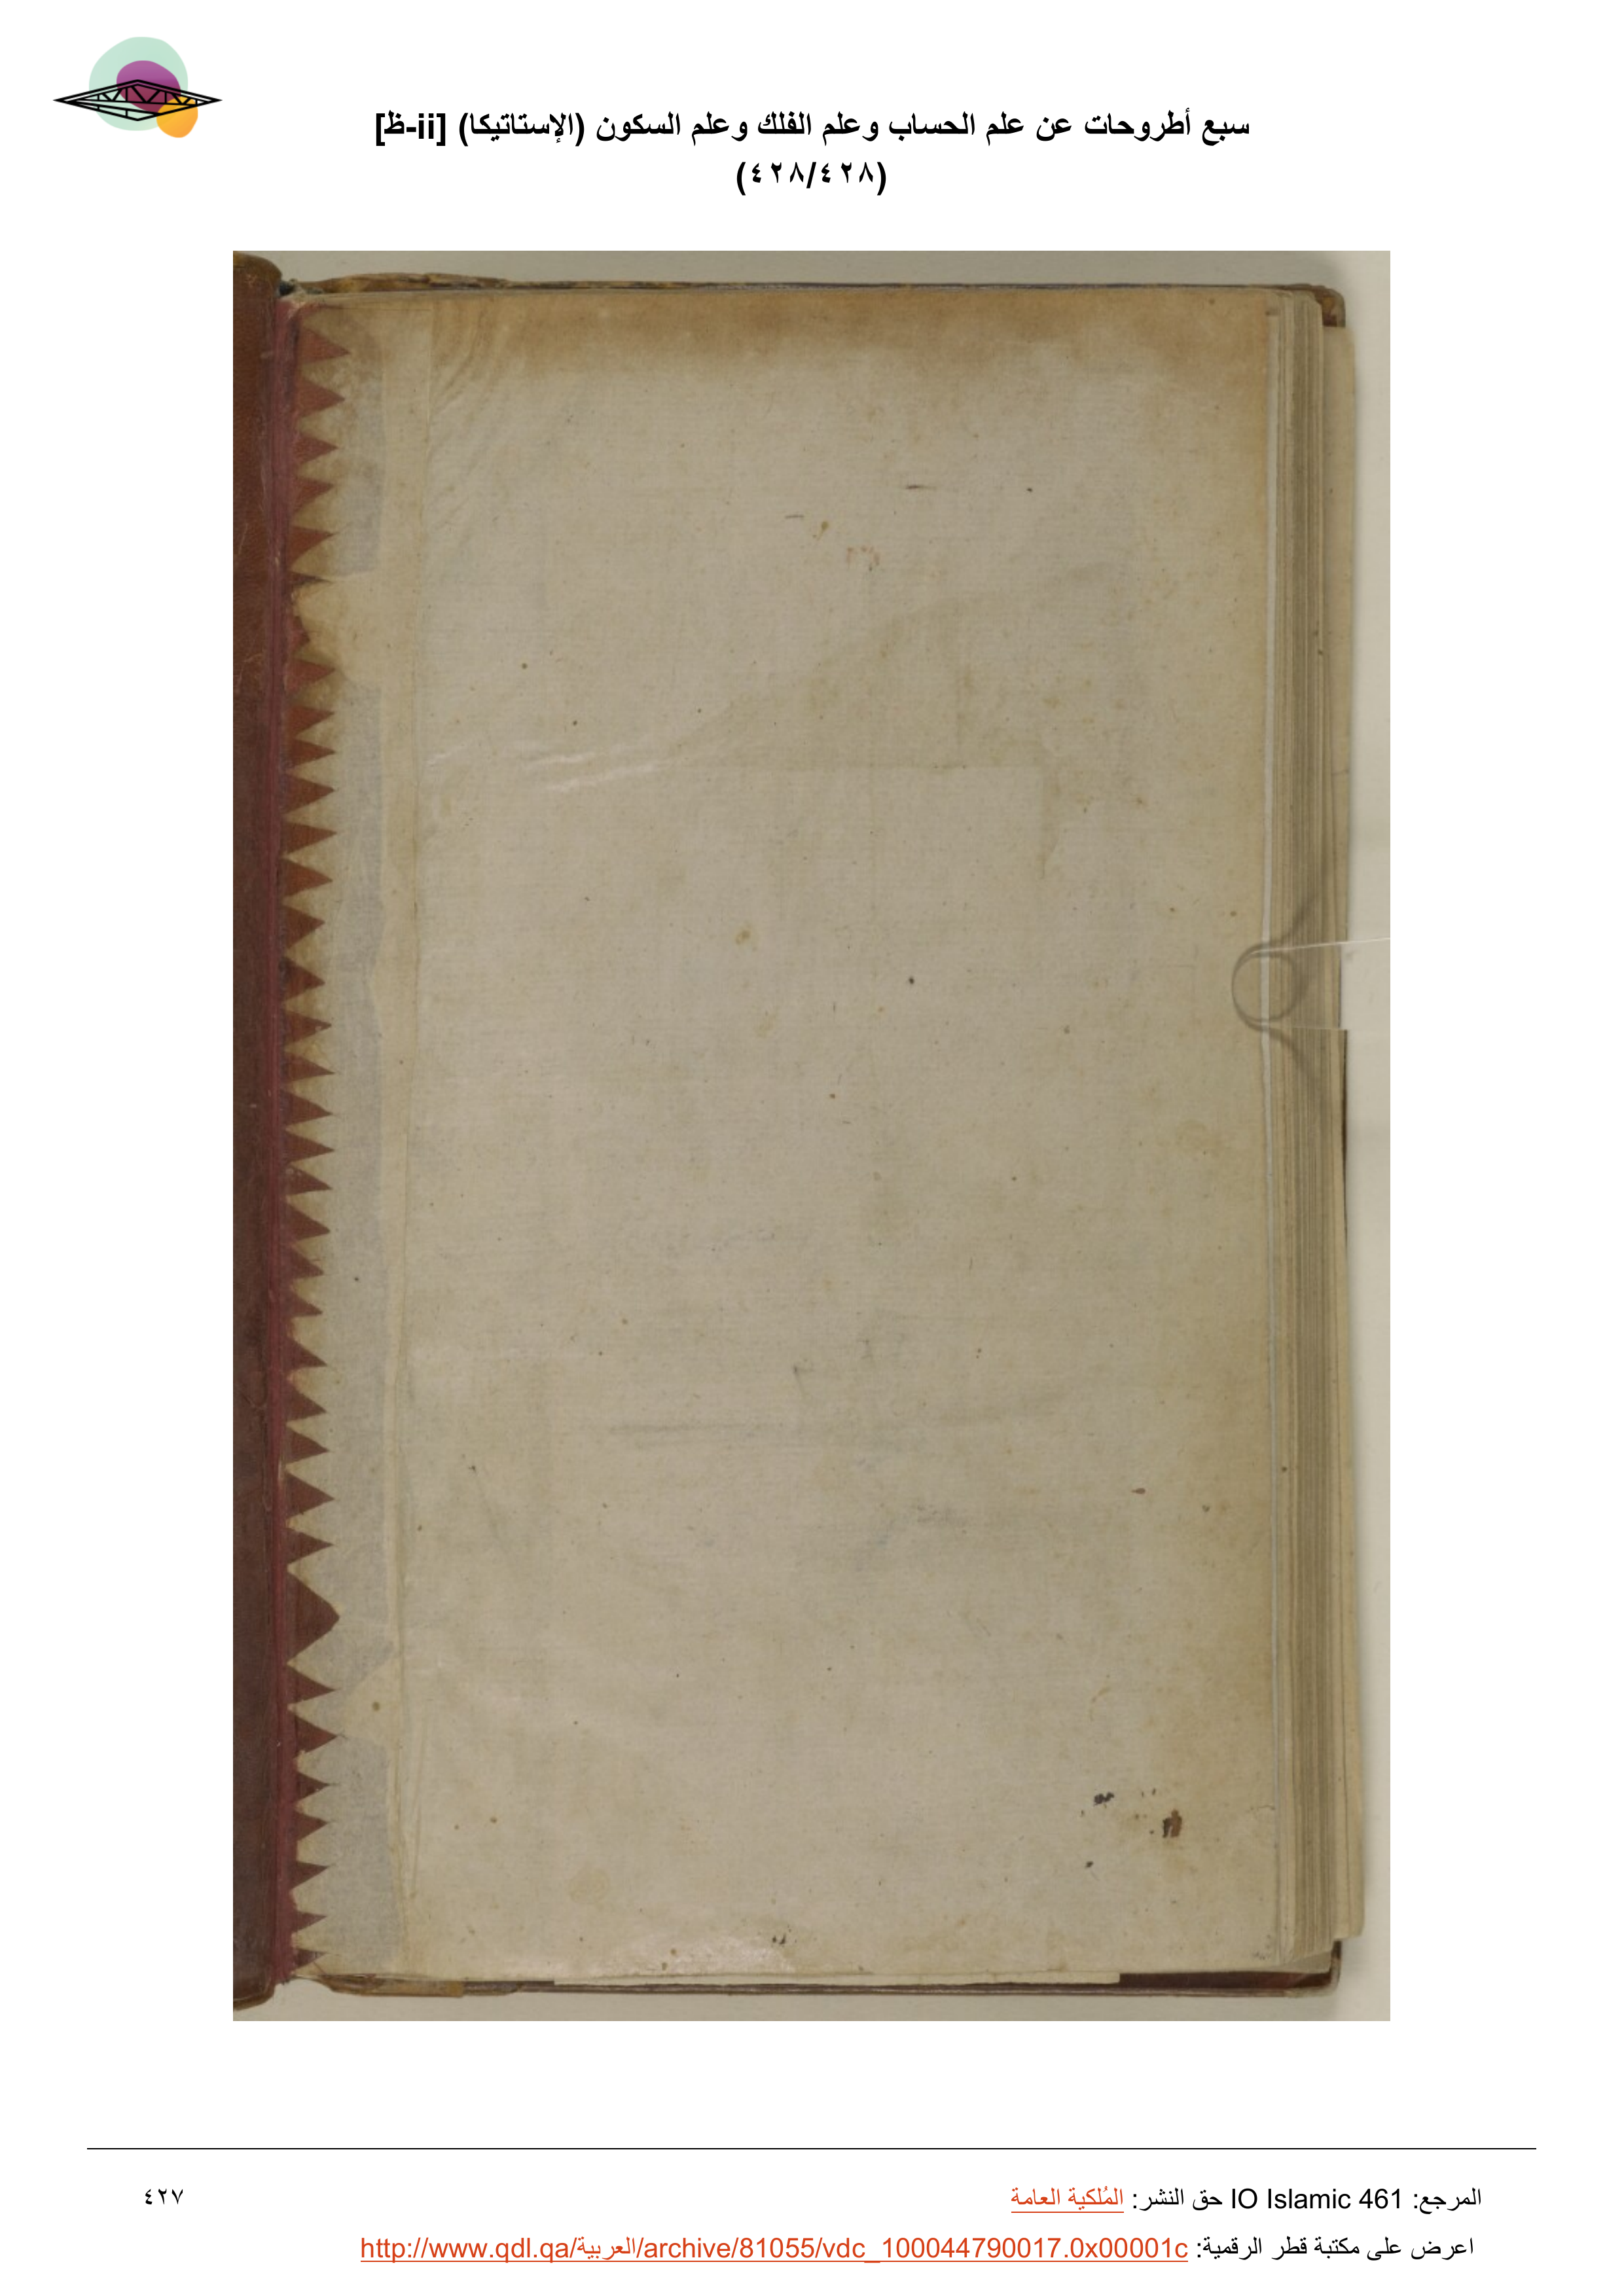 سبع أطروحات عن علم الحساب وعلم الفلك وعلم السكون (الإستاتيكا) [ii-ظ]
(٤٢٨/٤٢٨)
المرجع: IO Islamic 461 حق النشر: المُلكية العامة
٤٢٧
اعرض على مكتبة قطر الرقمية: http://www.qdl.qa/العربية/archive/81055/vdc_100044790017.0x00001c